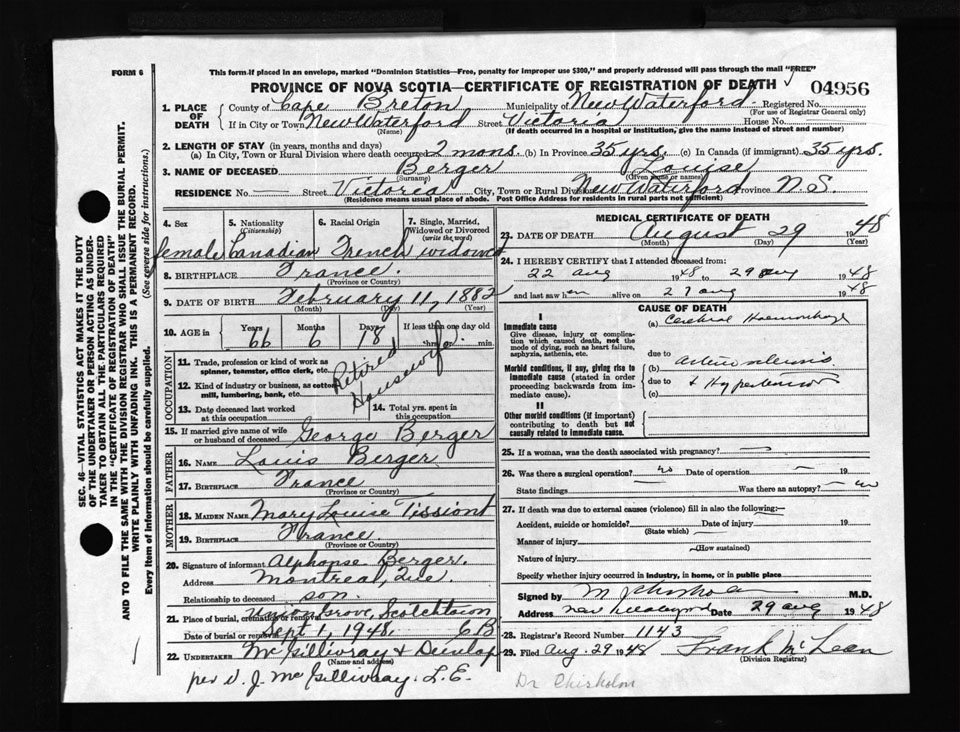 FORM 6
This form if placed in an envelope, marked "Dominion Statistics—Free, penalty for improper use $300," and properly addressed will pass through the mail "FREE"
PROVINCE OF NOVA SCOTIA—CERTIFICATE OF REGISTRATION OF DEATH
04956
1. PLACE OF DEATH County of Cape Breton Municipality of New Waterford Registered No.
(For use of Registrar General only)
If in City or Town New Waterford Street Victoria House No.
(Name) (If death occurred in a hospital or institution, give the name instead of street and number)
2. LENGTH OF STAY (in years, months and days)
(a) In City, Town or Rural Division where death occurred 2 mons. (b) In Province 35 yrs. (c) In Canada (if immigrant) 35 yrs.
3. NAME OF DECEASED Berger Louise
(Surname) (Given name or names)
RESIDENCE No. — Street Victoria City, Town or Rural Division New Waterford Province N.S.
(Residence means usual place of abode. Post Office Address for residents in rural parts not sufficient)
4. Sex 5. Nationality (Citizenship) 6. Racial Origin 7. Single, Married, Widowed or Divorced (write the word)
female Canadian French widowed
8. BIRTHPLACE France.
9. DATE OF BIRTH February 11, 1882
(Month) (Day) (Year)
10. AGE in Years Months Days If less than one day old
66 6 18 hrs. or min.
OCCUPATION
11. Trade, profession or kind of work as spinner, teamster, office clerk, etc.
12. Kind of industry or business, as cotton mill, lumbering, bank, etc.
Retired Housewife
13. Date deceased last worked at this occupation
14. Total yrs. spent in this occupation
15. If married give name of wife or husband of deceased George Berger
FATHER
16. NAME Louis Berger
17. BIRTHPLACE France
(Province or Country)
MOTHER
18. MAIDEN NAME Mary Louise Tissiont
19. BIRTHPLACE France
(Province or Country)
20. Signature of informant Alphonse Berger.
Address Montreal, Que.
Relationship to deceased son.
21. Place of burial, cremation or removal Union Grove, Scotchtown
Date of burial or removal Sept 1, 1948. C B
22. UNDERTAKER McGillivray & Dunlap
(Name and address)
per D. J. McGillivray. L.E.
MEDICAL CERTIFICATE OF DEATH
23. DATE OF DEATH August 29 1948
(Month) (Day) (Year)
24. I HEREBY CERTIFY that I attended deceased from:
22 aug 1948 to 29 aug 1948
and last saw her alive on 27 aug 1948
CAUSE OF DEATH
I
Immediate cause
Give disease, injury or complication which caused death, not the mode of dying, such as heart failure, asphyxia, asthenia, etc.
(a) Cerebral Haemorrhage
due to
Morbid conditions, if any, giving rise to immediate cause (stated in order proceeding backwards from immediate cause).
(b)
due to & Hypertension
(c)
II
Other morbid conditions (if important) contributing to death but not causally related to immediate cause.
25. If a woman, was the death associated with pregnancy?
26. Was there a surgical operation? no Date of operation — 19
State findings Was there an autopsy? no
27. If death was due to external causes (violence) fill in also the following:
Accident, suicide or homicide? Date of injury 19
(State which)
Manner of injury
(How sustained)
Nature of injury
Specify whether injury occurred in industry, in home, or in public place
Signed by M J Chisholm M.D.
Address New Waterford Date 29 aug 1948
28. Registrar's Record Number 1143
29. Filed Aug. 29 1948 Frank McLean
(Division Registrar)
Dr Chisholm
SEC. 46—VITAL STATISTICS ACT MAKES IT THE DUTY OF THE UNDERTAKER OR PERSON ACTING AS UNDERTAKER TO OBTAIN ALL THE PARTICULARS REQUIRED IN THE "CERTIFICATE OF REGISTRATION OF DEATH" AND TO FILE THE SAME WITH THE DIVISION REGISTRAR WHO SHALL ISSUE THE BURIAL PERMIT.
WRITE PLAINLY WITH UNFADING INK. THIS IS A PERMANENT RECORD.
Every item of information should be carefully supplied. (See reverse side for instructions.)